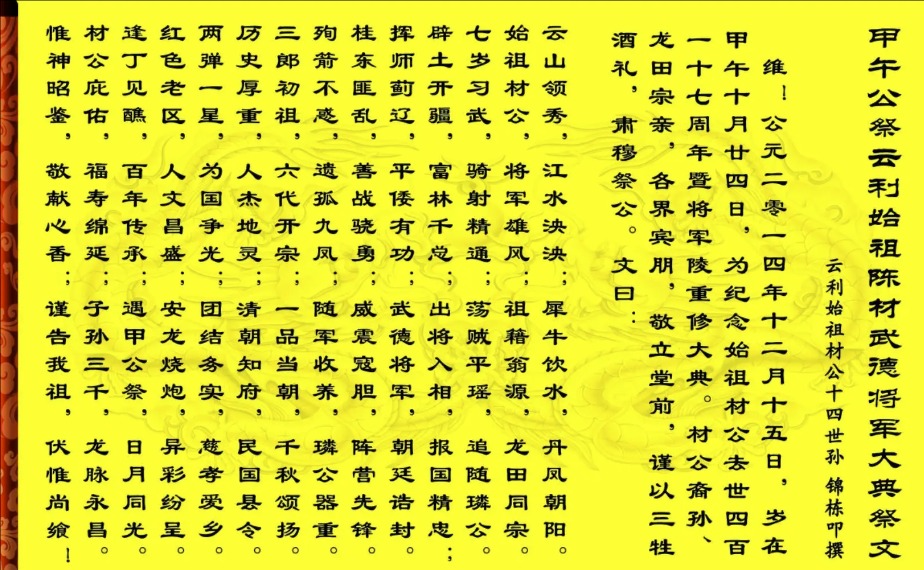 甲午公祭云利始祖陈材武德将军大典祭文
云利始祖材公十四世孙 锦栋叩撰
维！公元二零一四年十二月十五日，岁在
甲午十月廿四日，为纪念始祖材公去世四百
一十七周年暨将军陵重修大典。材公裔孙、
龙田宗亲，各界宾朋，敬立堂前，谨以三牲
酒礼，肃穆祭公。文曰：
云山领秀，江水泱泱；犀牛饮水，丹凤朝阳。
始祖材公，将军雄风；祖籍翁源，龙田同宗。
七岁习武，骑射精通；荡贼平瑶，追随璘公。
辟土开疆，富林千总；出将入相，报国精忠；
挥师蓟辽，平倭有功；武德将军，朝廷诰封。
桂东匪乱，善战骁勇；威震寇胆，阵营先锋。
殉箭不惑，遗孤九凤；随军收养，璘公器重。
三郎初祖，六代开宗；一品当朝，千秋颂扬。
历史厚重，人杰地灵；清朝知府，民国县令。
两弹一星，为国争光；团结务实，慈孝爱乡。
红色老区，人文昌盛；安龙烧炮，异彩纷呈。
逢丁见醮，百年传承；遇甲公祭，日月同光。
材公庇佑，福寿绵延；子孙三千，龙脉永昌。
惟神昭鉴，敬献心香；谨告我祖，伏惟尚飨！